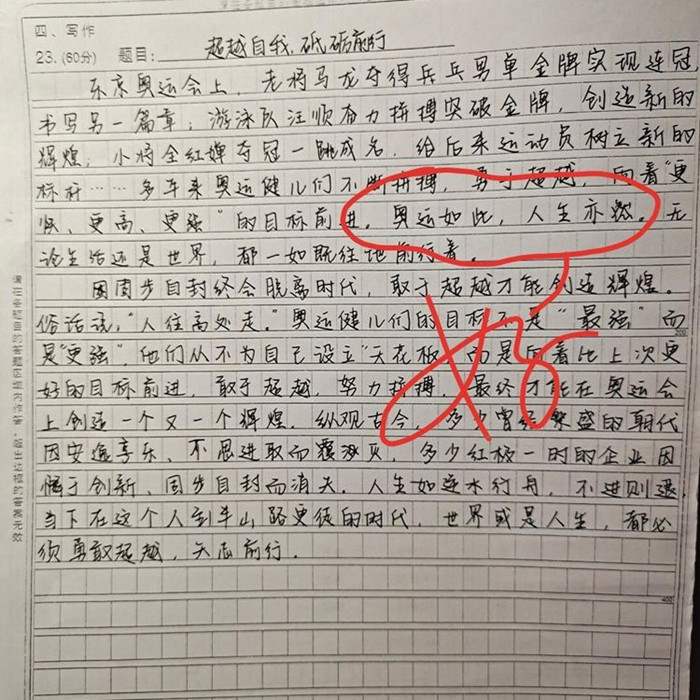 四、写作
23.(60分) 题目: 超越自我,砥砺前行
东京奥运会上,老将马龙夺得乒乓男单金牌实现连冠,
书写另一篇章;游泳队汪顺奋力拼搏突破金牌,创造新的
辉煌;小将全红婵夺冠一跳成名,给后来运动员树立新的
标杆……多年来奥运健儿们不断拼搏,勇于超越,向着“更
快、更高、更强”的目标前进。奥运如此,人生亦然。无
论生活还是世界,都一如既往地前行着。
固步自封终会脱离时代,敢于超越才能创造辉煌。
俗话说,“人往高处走。”奥运健儿们的目标不是“最强”而
是“更强”他们从不为自己设立“天花板”而是向着比上次更
好的目标前进,敢于超越,努力拼搏,最终才能在奥运会
上创造一个又一个辉煌。纵观古今,多少曾经繁盛的朝代
因安逸享乐、不思进取而覆灭,多少红极一时的企业因
惰于创新、固步自封而消失。人生如逆水行舟,不进则退
当下在这个人到半山路更陡的时代,世界或是人生,都必
须勇敢超越,矢志前行。
好
200
400
请在各题目的答题区域内作答,超出边框的答案无效